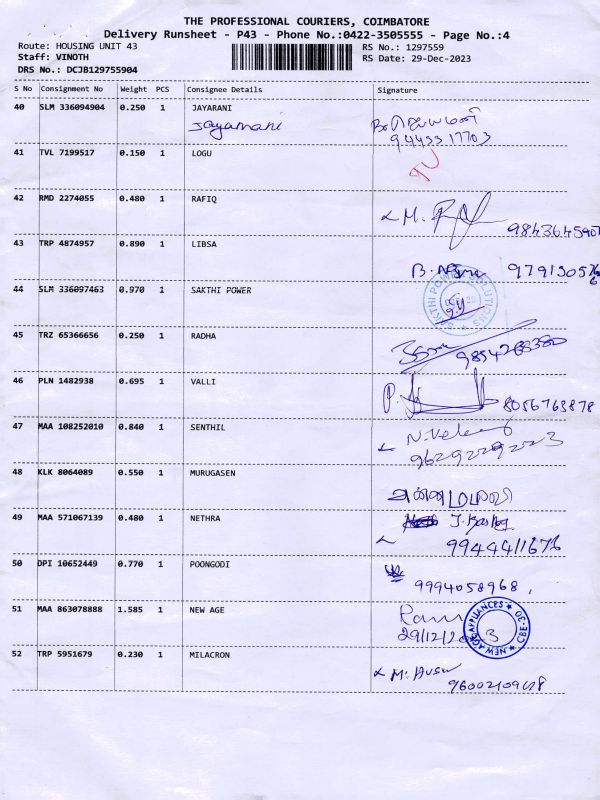 THE PROFESSIONAL COURIERS, COIMBATORE
Delivery Runsheet - P43 - Phone No.:0422-3505555 - Page No.:4
Route: HOUSING UNIT 43 RS No.: 1297559
Staff: VINOTH RS Date: 29-Dec-2023
DRS No.: DCJB129755904
S No Consignment No Weight PCS Consignee Details Signature
40 SLM 336094904 0.250 1 JAYARANI
Jayamani
9445317703
41 TVL 7199517 0.150 1 LOGU
42 RMD 2274055 0.480 1 RAFIQ
M.
9843645907
43 TRP 4874957 0.890 1 LIBSA
B.
44 SLM 336097463 0.970 1 SAKTHI POWER
SAKTHI POWER SOLUTIONS
45 TRZ 65366656 0.250 1 RADHA
46 PLN 1482938 0.695 1 VALLI
P. 8056763878
47 MAA 108252010 0.840 1 SENTHIL
9629229223
48 KLK 8064089 0.550 1 MURUGASEN
49 MAA 571067139 0.480 1 NETHRA
9944411676
50 DPI 10652449 0.770 1 POONGODI
9994058968
51 MAA 863078888 1.585 1 NEW AGE
NEW AGE APPLIANCES CBE-30
29/12/2023
52 TRP 5951679 0.230 1 MILACRON
M.